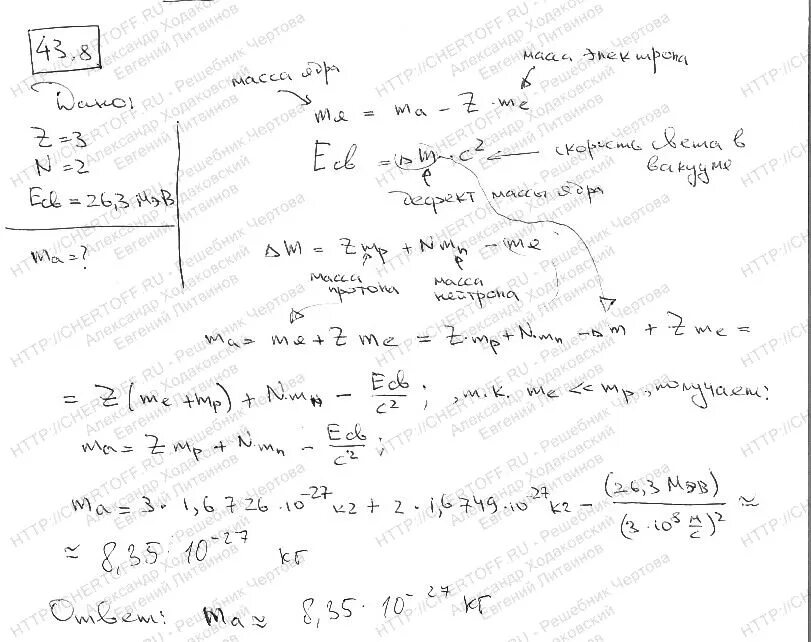 43.8
Дано:
Z=3
N=2
Eсв = 26,3 МэВ
ma=?
масса ядра
масса электрона
mя = ma − Z·me
Eсв = Δm·c²
скорость света в вакууме
дефект массы ядра
Δm = Zmp + Nmn − mя
масса протона
масса нейтрона
ma = mя + Z me = Z·mp + N·mn − Δm + Z me =
= Z(me+mp) + N·mn − Eсв/c²; , т.к. me << mp, получаем:
ma = Z mp + N·mn − Eсв/c²;
ma = 3 · 1,6726·10⁻²⁷ кг + 2 · 1,6749·10⁻²⁷ кг − (26,3 МэВ)/(3·10⁸ м/с)² ≈
≈ 8,35·10⁻²⁷ кг
Ответ: ma ≈ 8,35·10⁻²⁷ кг
HTTP://CHERTOFF.RU - Решебник Чертова
Александр Ходаковский
Евгений Литвинов